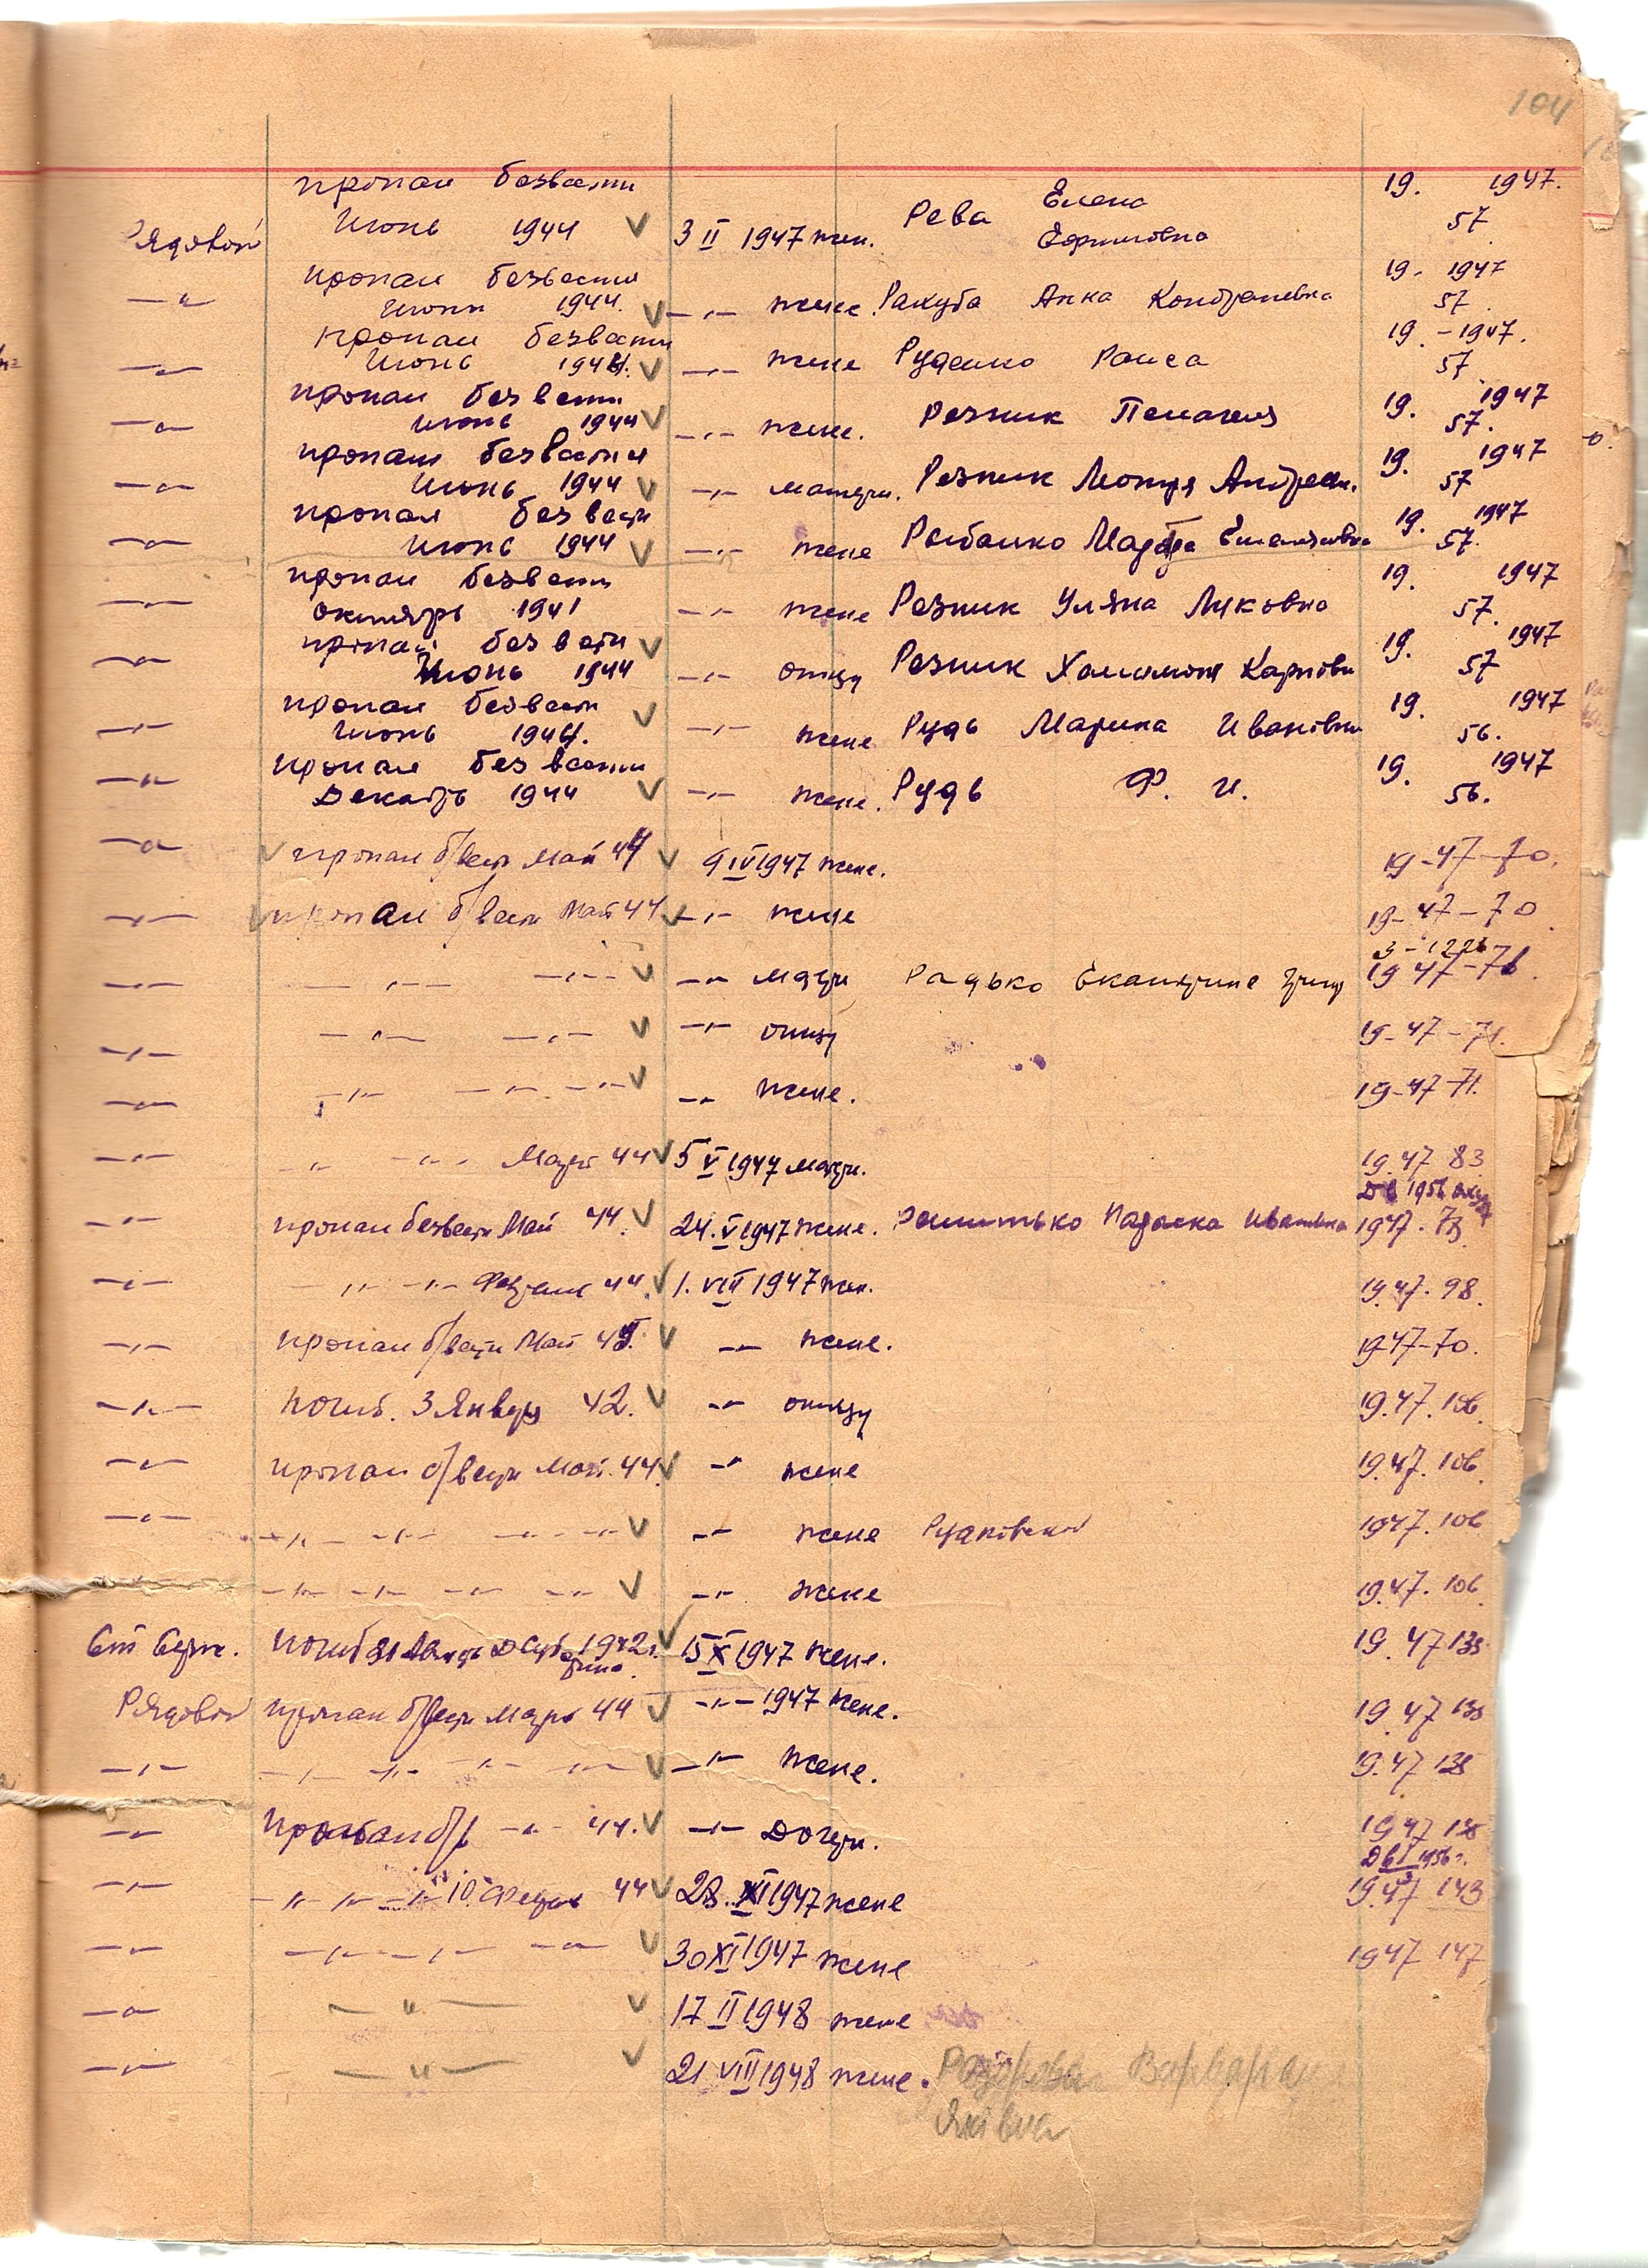 104
пропал безвести 19. 1947.
Рядовой Июнь 1944 V 3 II 1947 жен. Рева Елена Ефимовна 57
пропал безвести 19. 1947
—"— Июнь 1944. V —"— жене. Ракуба Анна Кондратьевна 57.
пропал безвести 19. – 1947.
—"— Июнь 1944. V —"— жене Руденко Раиса 57
пропал безвести 19. 1947
—"— июнь 1944 V —"— жене. Резник Пелагея 57.
пропал безвести 19. 1947
—"— Июнь 1944 V —"— матери. Резник Мотря Андреев. 57
пропал безвести 19. 1947
—"— Июнь 1944 V —"— жене Рыбалко Марфа Емельяновна 57.
пропал безвести 19. 1947
—"— октябрь 1941 —"— жене Резник Уляна Луковна 57.
пропал безвести V 19. 1947
—"— Июнь 1944 —"— отцу Резник Карпови 57
пропал безвести V 19. 1947
—"— Июнь 1944. —"— жене Рудь Марина Ивановна 56.
пропал безвести 19. 1947
—"— Декабрь 1944 V —"— жене. Рудь Ф. И. 56.
—"— V пропал б/вести Май 44 V 9 IV 1947 жене. 19-47-70.
—"— V пропал б/вести Май 44 V —"— жене 19-47-70
—"— —"— —"— V —"— матери Радько Екатерине 19 47-76.
—"— —"— —"— V —"— отцу 19-47-71.
—"— —"— —"— —"— V —"— жене. 19-47-71.
—"— —"— —"— Март 44 V 5 V 1947 матери. 19.47 83
1956
—"— пропал безвести Май 44. V 24. V 1947 жене. Параска Ивановна 1947. 73.
—"— —"— —"— Февраль 44. V 1. VIII 1947 жен. 19.47. 98.
—"— пропал б/вести Май 45. V —"— жене. 1947-70.
—"— погиб. 3 Января 42. V —"— отцу 19.47. 106.
—"— пропал б/вести Май. 44. V —"— жене 19.47. 106.
—"— —"— —"— —"— V —"— жене 1947. 106
—"— —"— —"— —"— V —"— жене 19.47. 106
Ст Серж. Погиб 31 1942г. V 15 X 1947 жене. 19.47 135
Рядовой пропал б/вести Март 44 V —"— 1947 жене. 19.47 135
—"— —"— —"— —"— —"— V —"— жене. 19.47 138
—"— пропал б/в —"— 44. V —"— Дочери. 1947 138
1956 г.
—"— —"— —"— 10 Февраль 44 V 28. XI 1947 жене 19.47 143
—"— —"— —"— —"— V 30 XI 1947 жене 1947 147
—"— —"— V 17 II 1948 жене
—"— —"— V 21 VIII 1948 жене. Варвара
Яківна